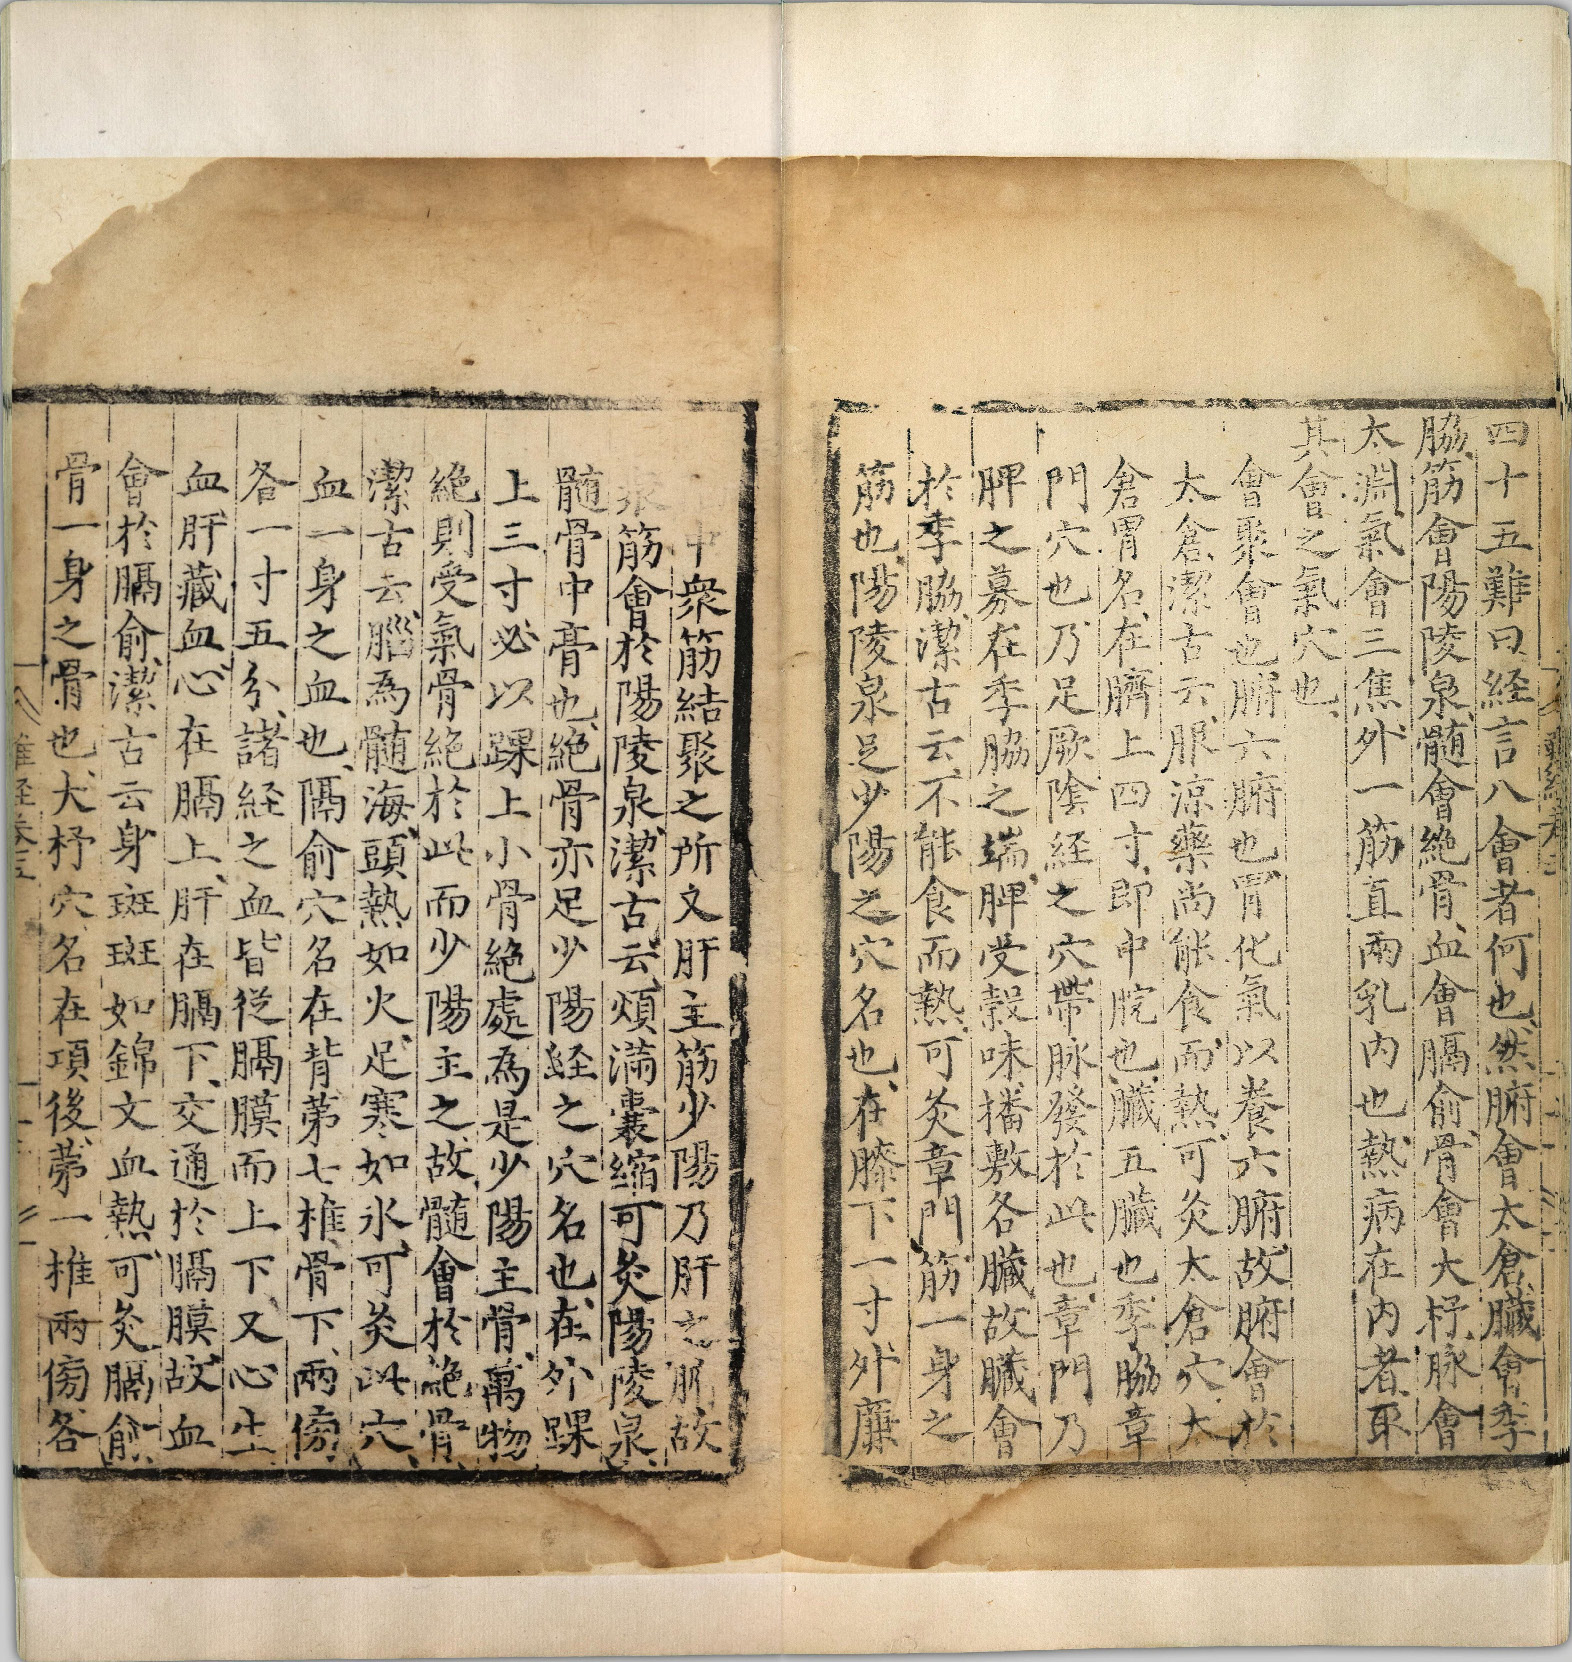 四十五難曰経言八會者何也然腑會太倉臓會季
脇筋會陽陵泉髓會絶骨血會膈俞骨會大杼脉會
太淵氣會三焦外一筋直兩乳内也熱病在内者取
其會之氣穴也
會聚會也腑六腑也胃化氣以養六腑故腑會於
太倉潔古云服涼藥尚能食而熱可灸太倉穴太
倉胃名在臍上四寸即中脘也臓五臓也季脇章
門穴也乃足厥陰経之穴帶脉發於此也章門乃
脾之募在季脇之端脾受榖味播敷各臓故臓會
於季脇潔古云不能食而熱可灸章門筋一身之
筋也陽陵泉足少陽之穴名也在膝下一寸外廉
中衆筋結聚之所又肝主筋少陽乃肝之腑故
筋會於陽陵泉潔古云煩滿囊縮可灸陽陵泉
髓骨中膏也絶骨亦足少陽経之穴名也在外踝
上三寸必以踝上小骨絶處為是少陽主骨萬物
絶則受氣骨絶於此而少陽主之故髓會於絶骨
潔古云腦為髓海頭熱如火足寒如氷可灸此穴
血一身之血也隔俞穴名在背苐七椎骨下兩傍
各一寸五分諸経之血皆從膈膜而上下又心生
血肝藏血心在膈上肝在膈下交通於膈膜故血
會於膈俞潔古云身斑斑如錦文血熱可灸膈俞
骨一身之骨也大杼穴名在項後苐一椎兩傍各